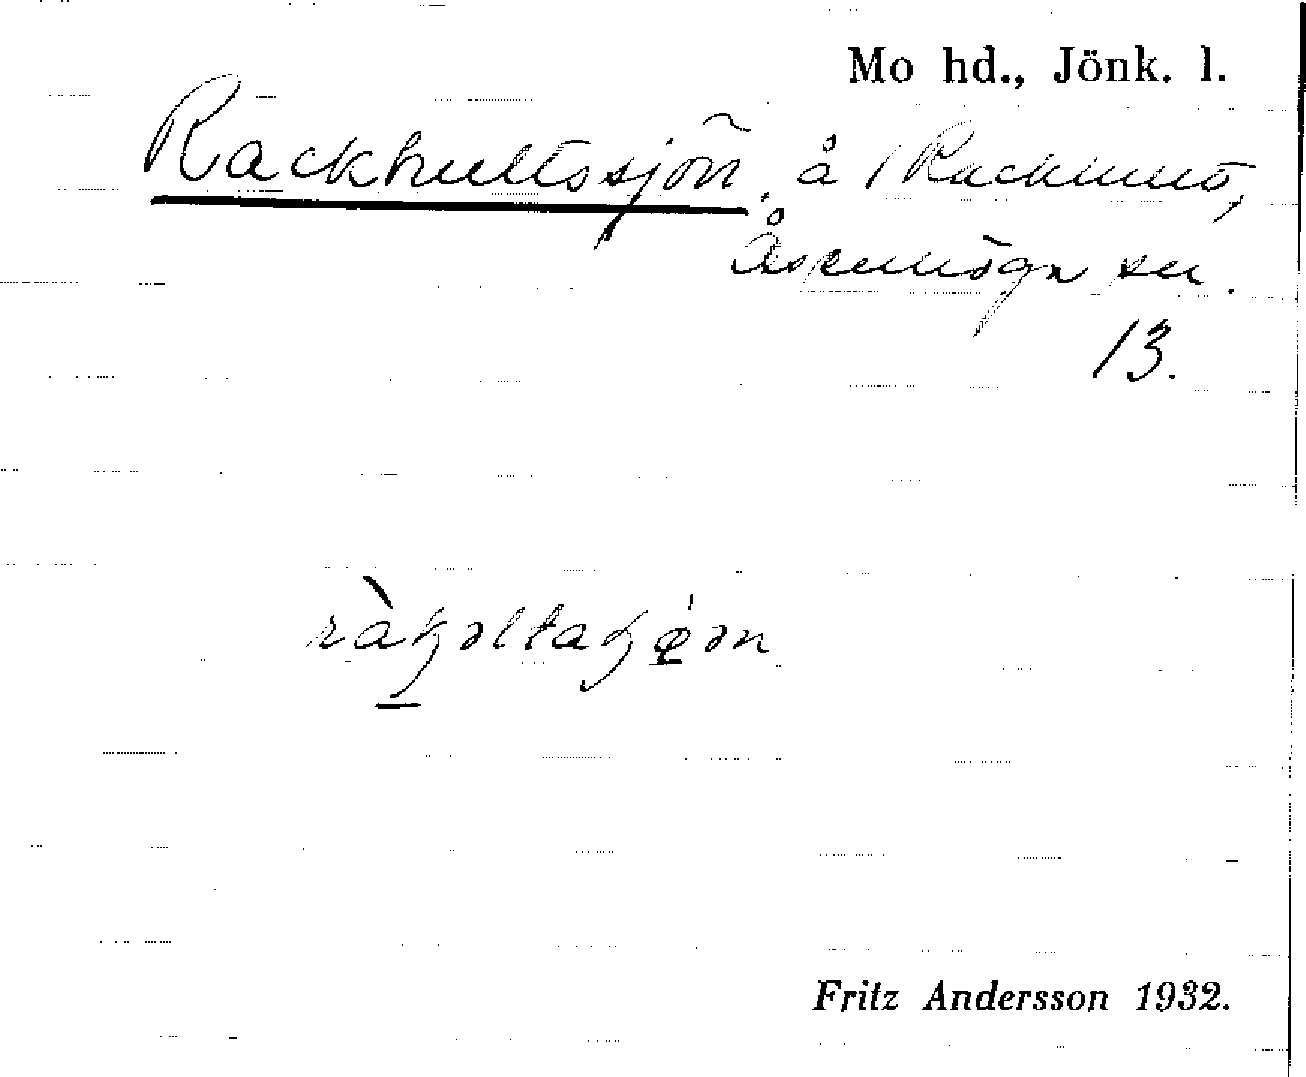 Mo hd., Jönk. l.
Rackhultssjön, å Rackhult,
Åsenhöga sn.
13.
Fritz Andersson 1932.